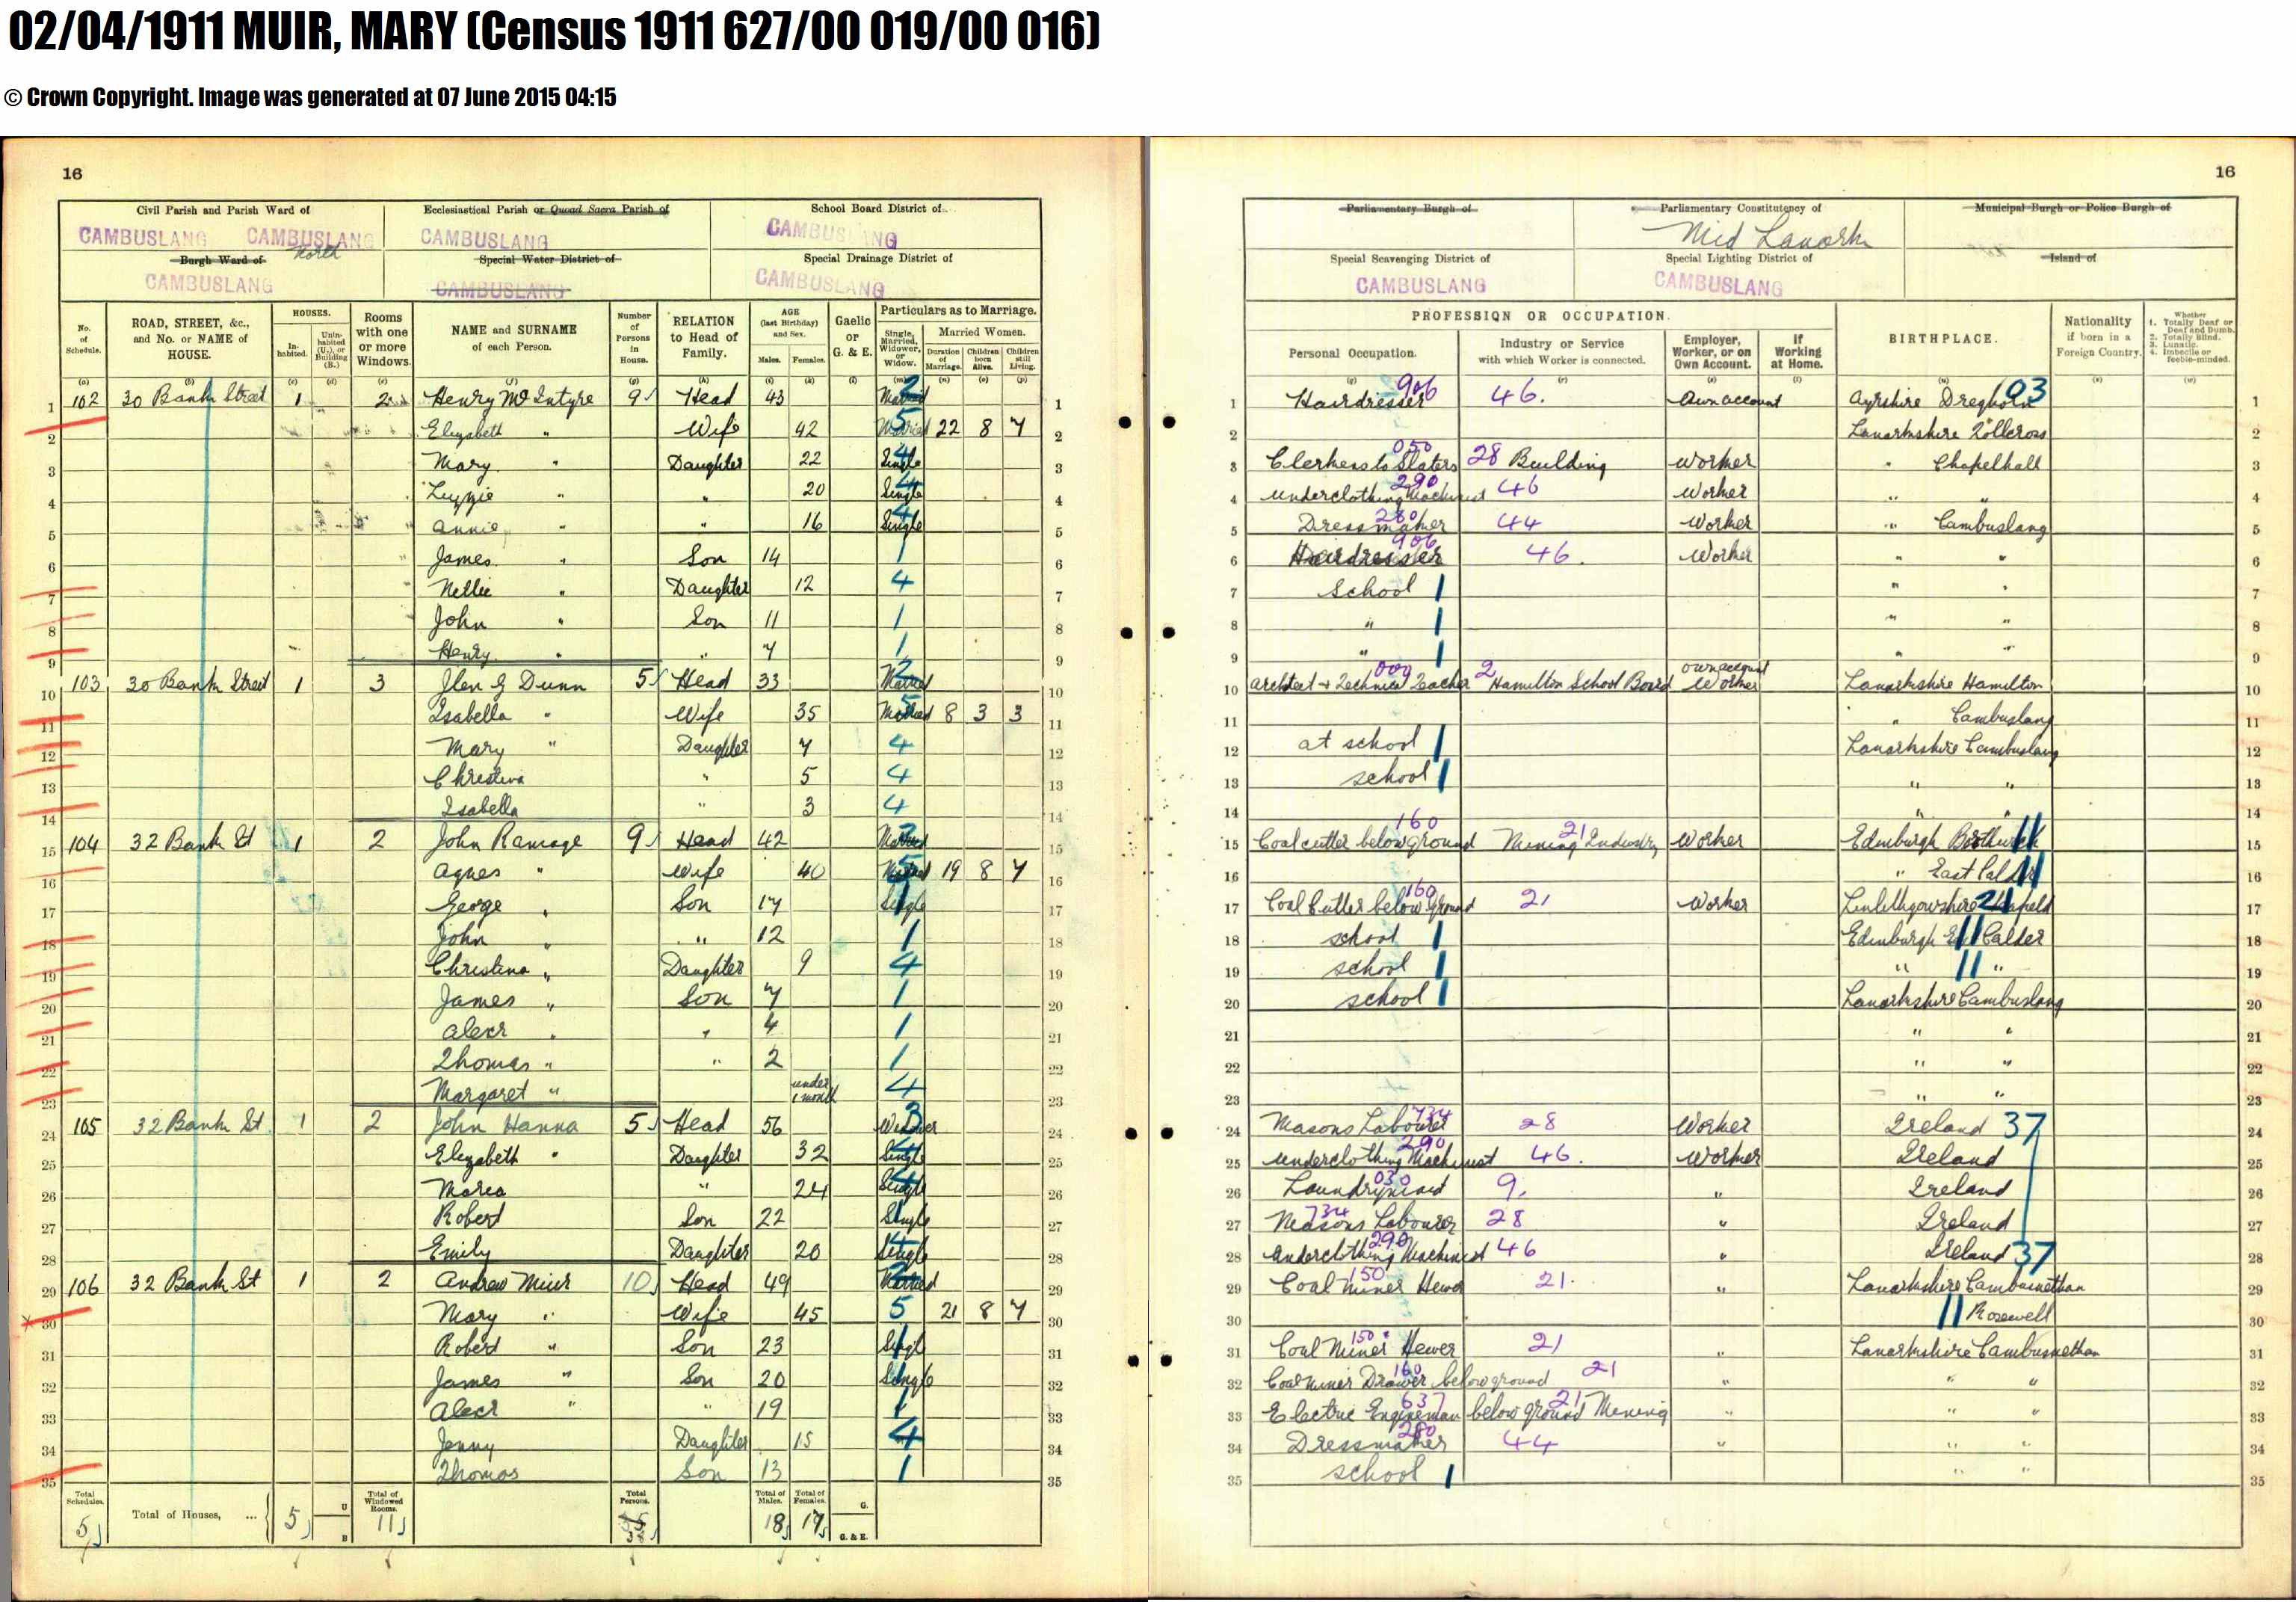 02/04/1911 MUIR, MARY (Census 1911 627/00 019/00 016)
© Crown Copyright. Image was generated at 07 June 2015 04:15
16
Civil Parish and Parish Ward of
CAMBUSLANG CAMBUSLANG North
Ecclesiastical Parish or Quoad Sacra Parish of
CAMBUSLANG
School Board District of
CAMBUSLANG
Burgh Ward of
CAMBUSLANG
Special Water District of
CAMBUSLANG
Special Drainage District of
CAMBUSLANG
No. of Schedule.
ROAD, STREET, &c., and No. or NAME of HOUSE.
HOUSES.
Inhabited.
Uninhabited (U.), or Building (B.)
Rooms with one or more Windows.
NAME and SURNAME of each Person.
Number of Persons in House.
RELATION to Head of Family.
AGE (last Birthday) and Sex.
Males. Females.
Gaelic or G. & E.
Particulars as to Marriage.
Single, Married, Widower, or Widow.
Married Women.
Duration of Marriage.
Children born Alive.
Children still Living.
1 102 30 Bank Street 1 2 Henry McIntyre 9 Head 43 Married 2 1
2 Elizabeth " Wife 42 Married 5 22 8 7 2
3 Mary " Daughter 22 Single 4 3
4 Lizzie " " 20 Single 4 4
5 Annie " " 16 Single 4 5
6 James " Son 14 1 6
7 Nellie " Daughter 12 4 7
8 John " Son 11 1 8
9 Henry " " 7 1 9
10 103 30 Bank Street 1 3 Dunn 5 Head 33 Married 2 10
11 Isabella " Wife 35 Married 5 8 3 3 11
12 Mary " Daughter 7 4 12
13 Christina " 5 4 13
14 Isabella " 3 4 14
15 104 32 Bank St 1 2 John Ramage 9 Head 42 Married 2 15
16 Agnes " Wife 40 Married 5 19 8 7 16
17 George " Son 17 Single 1 17
18 John " " 12 1 18
19 Christina " Daughter 9 4 19
20 James " Son 7 1 20
21 Alexr " " 4 1 21
22 Thomas " " 2 1 22
23 Margaret " under 1 month 4 23
24 105 32 Bank St 1 2 John Hanna 5 Head 56 Widower 3 24
25 Elizabeth " Daughter 32 Single 4 25
26 Maria " 24 Single 4 26
27 Robert Son 22 Single 1 27
28 Emily Daughter 20 Single 4 28
29 106 32 Bank St 1 2 Andrew Muir 10 Head 49 Married 2 29
30 Mary " Wife 45 5 21 8 7 30
31 Robert " Son 23 Singl 1 31
32 James " Son 20 Single 1 32
33 Alexr " " 19 1 33
34 Jenny Daughter 15 4 34
35 Thomas Son 13 1 35
Total Schedules. 5
Total of Houses, ... 5 U B
Total of Windowed Rooms. 11
Total Persons. 35
Total of Males. 18
Total of Females. 17
G.
G. & E.
16
Parliamentary Burgh of
Parliamentary Constitutency of
Mid Lanark
Municipal Burgh or Police Burgh of
Special Scavenging District of
CAMBUSLANG
Special Lighting District of
CAMBUSLANG
Island of
PROFESSION OR OCCUPATION.
Personal Occupation.
Industry or Service with which Worker is connected.
Employer, Worker, or on Own Account.
If Working at Home.
BIRTHPLACE.
Nationality if born in a Foreign Country.
Whether
1. Totally Deaf or Deaf and Dumb.
2. Totally Blind.
3. Lunatic.
4. Imbecile or feeble-minded.
1 Hairdresser 906 46. Own account Ayrshire Dreghorn 03 1
2 Lanarkshire Tollcross 2
3 Clerkess to Slaters 050 28 Building Worker " Chapelhall 3
4 Underclothing Machinist 290 46 Worker " " 4
5 Dressmaker 280 44 Worker " Cambuslang 5
6 Hairdresser 906 46. Worker " " 6
7 School 1 " " 7
8 " 1 " " 8
9 " 1 " " 9
10 Architect + Technical Teacher 009 2 Hamilton School Board own account Worker Lanarkshire Hamilton 10
11 " Cambuslang 11
12 at school 1 Lanarkshire Cambuslang 12
13 school 1 " " 13
14 " " 14
15 Coal cutter below ground 160 Mining Industry 21 Worker Edinburgh Borthwick 11 15
16 " East Calder 11 16
17 Coal Cutter below ground 160 21 Worker Linlithgowshire 21 17
18 school 1 Edinburgh E Calder 11 18
19 school 1 " 11 " 19
20 school 1 Lanarkshire Cambuslang 20
21 " " 21
22 " " 22
23 " " 23
24 Masons Labourer 734 28 Worker Ireland 37 24
25 Underclothing Machinist 290 46. Worker Ireland 25
26 Laundrymaid 030 9. " Ireland 26
27 Masons Labourer 734 28 " Ireland 27
28 Underclothing Machinist 290 46 " Ireland 37 28
29 Coal Miner Hewer 150 21. " Lanarkshire Cambusnethan 29
30 11 Rosewell 30
31 Coal Miner Hewer 150 21 " Lanarkshire Cambusnethan 31
32 Coal Miner Drawer below ground 160 21 " " " 32
33 Electric Engineman below ground Mining 637 21 " " " 33
34 Dressmaker 280 44 " " " 34
35 school 1 " " 35